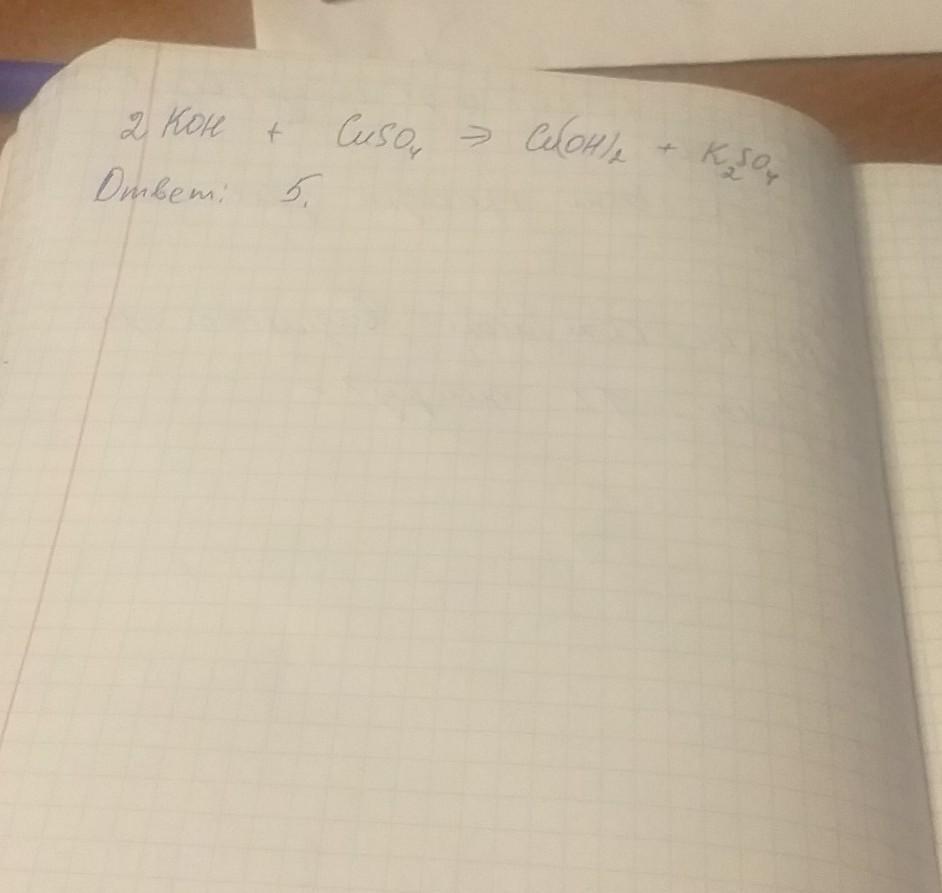 2 KOH + CuSO₄ ⇒ Cu(OH)₂ + K₂SO₄
Ответ: 5.